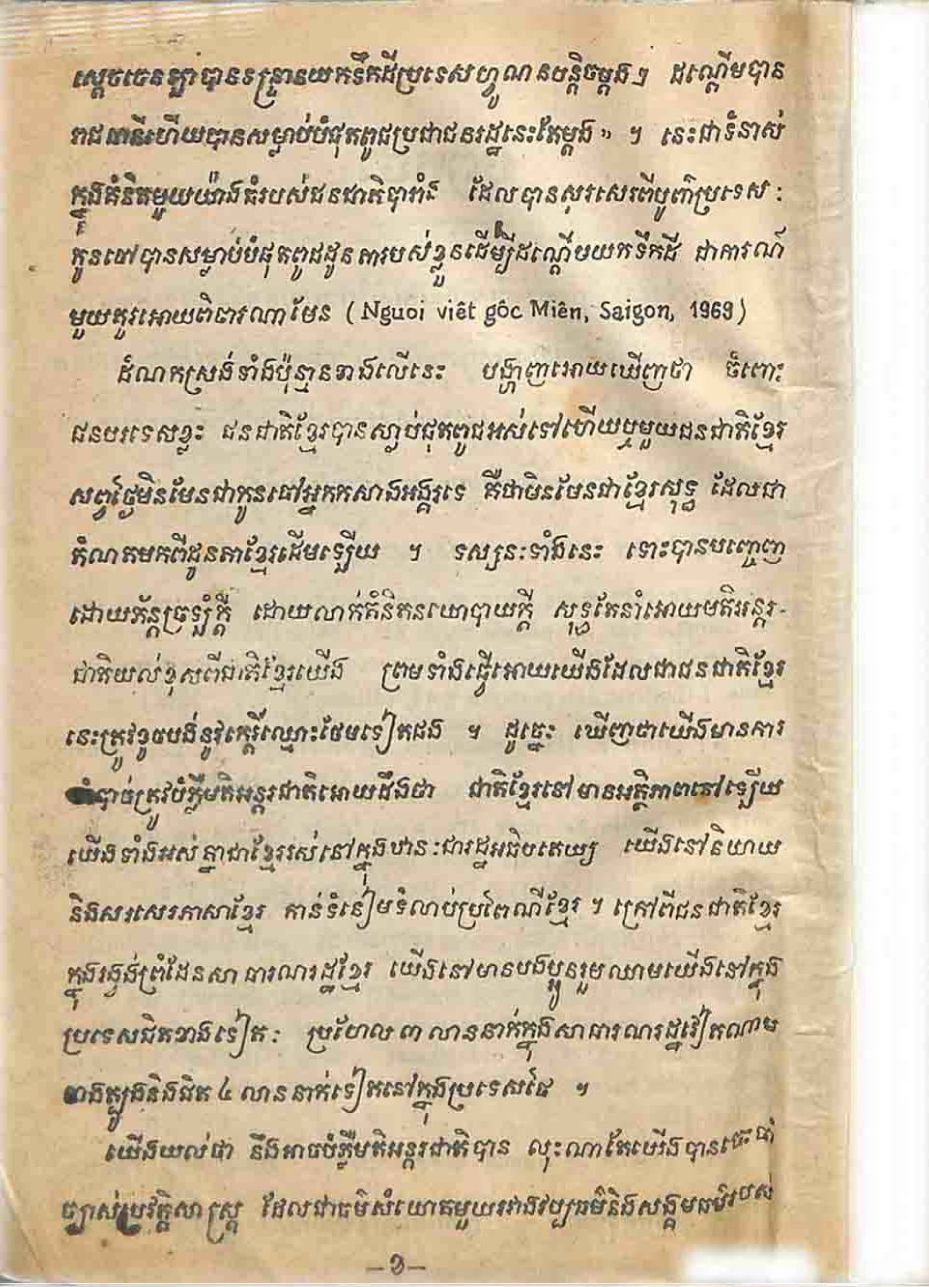 ស្ដេចចេនឡាបានទន្ទ្រានយកទឹកដីប្រទេសហ្វូណនបន្ដិចម្ដងៗ ដណ្ដើមបាន
រាជធានីហើយបានសម្លាប់បំផុតពូជប្រជាជនរដ្ឋនេះតែម្ដង» ។ នេះជាទំនាស់
ក្នុងគំនិតមួយយ៉ាងធំរបស់ជនជាតិបារាំង ដែលបានសរសេរពីបូព៌ាប្រទេស :
កូនចៅបានសម្លាប់បំផុតពូជដូនតារបស់ខ្លួនដើម្បីដណ្ដើមយកទឹកដី ជាការណ៍
មួយគួរអោយពិចារណាមែន (Nguoi viêt gôc Miên, Saigon, 1969)
ដំណកស្រង់ទាំងប៉ុន្មានខាងលើនេះ បង្ហាញអោយឃើញថា ចំពោះ
ជនបរទេសខ្លះ ជនជាតិខ្មែរបានស្លាប់ផុតពូជអស់ទៅហើយឬមួយជនជាតិខ្មែរ
សព្វថ្ងៃមិនមែនជាកូនចៅអ្នកកសាងអង្គរទេ គឺជាមិនមែនជាខ្មែរសុទ្ធ ដែលជា
តំណតមកពីដូនតាខ្មែរដើមឡើយ ។ ទស្សនៈទាំងនេះ ទោះបានបញ្ចេញ
ដោយភ័ន្តច្រឡំក្ដី ដោយលាក់គំនិតនយោបាយក្ដី សុទ្ធតែនាំអោយមតិអន្ដរ-
ជាតិយល់ខុសពីជាតិខ្មែរយើង ព្រមទាំងធ្វើអោយយើងដែលជាជនជាតិខ្មែរ
នេះត្រូវខូចបង់នូវកេរ្ដិ៍ឈ្មោះថែមទៀតផង ។ ដូច្នេះ ឃើញថាយើងមានការ
ចាំបាច់ត្រូវបំភ្លឺមតិអន្ដរជាតិអោយដឹងថា ជាតិខ្មែរនៅមានអត្ថិភាពនៅឡើយ
យើងទាំងអស់គ្នាជាខ្មែររស់នៅក្នុងឋានៈជារដ្ឋអធិបតេយ្យ យើងនៅនិយាយ
និងសរសេរភាសាខ្មែរ កាន់ទំនៀមទំលាប់ប្រពៃណីខ្មែរ ។ ក្រៅពីជនជាតិខ្មែរ
ក្នុងរង្វង់ព្រំដែនសាធារណរដ្ឋខ្មែរ យើងនៅមានបងប្អូនរួមឈាមយើងនៅក្នុង
ប្រទេសជិតខាងទៀត : ប្រហែល ៣ លាននាក់ក្នុងសាធារណរដ្ឋវៀតណាម
ខាងត្បូងនិងជិត ៤ លាននាក់ទៀតនៅក្នុងប្រទេសថៃ ។
យើងយល់ថា នឹងអាចបំភ្លឺមតិអន្ដរជាតិបាន លុះណាតែយើងបានចេះចាំ
ច្បាស់ប្រវត្ដិសាស្ដ្រ ដែលជាធម៌សំយោគមួយរវាងវប្បធម៌និងសង្គមធម៌របស់